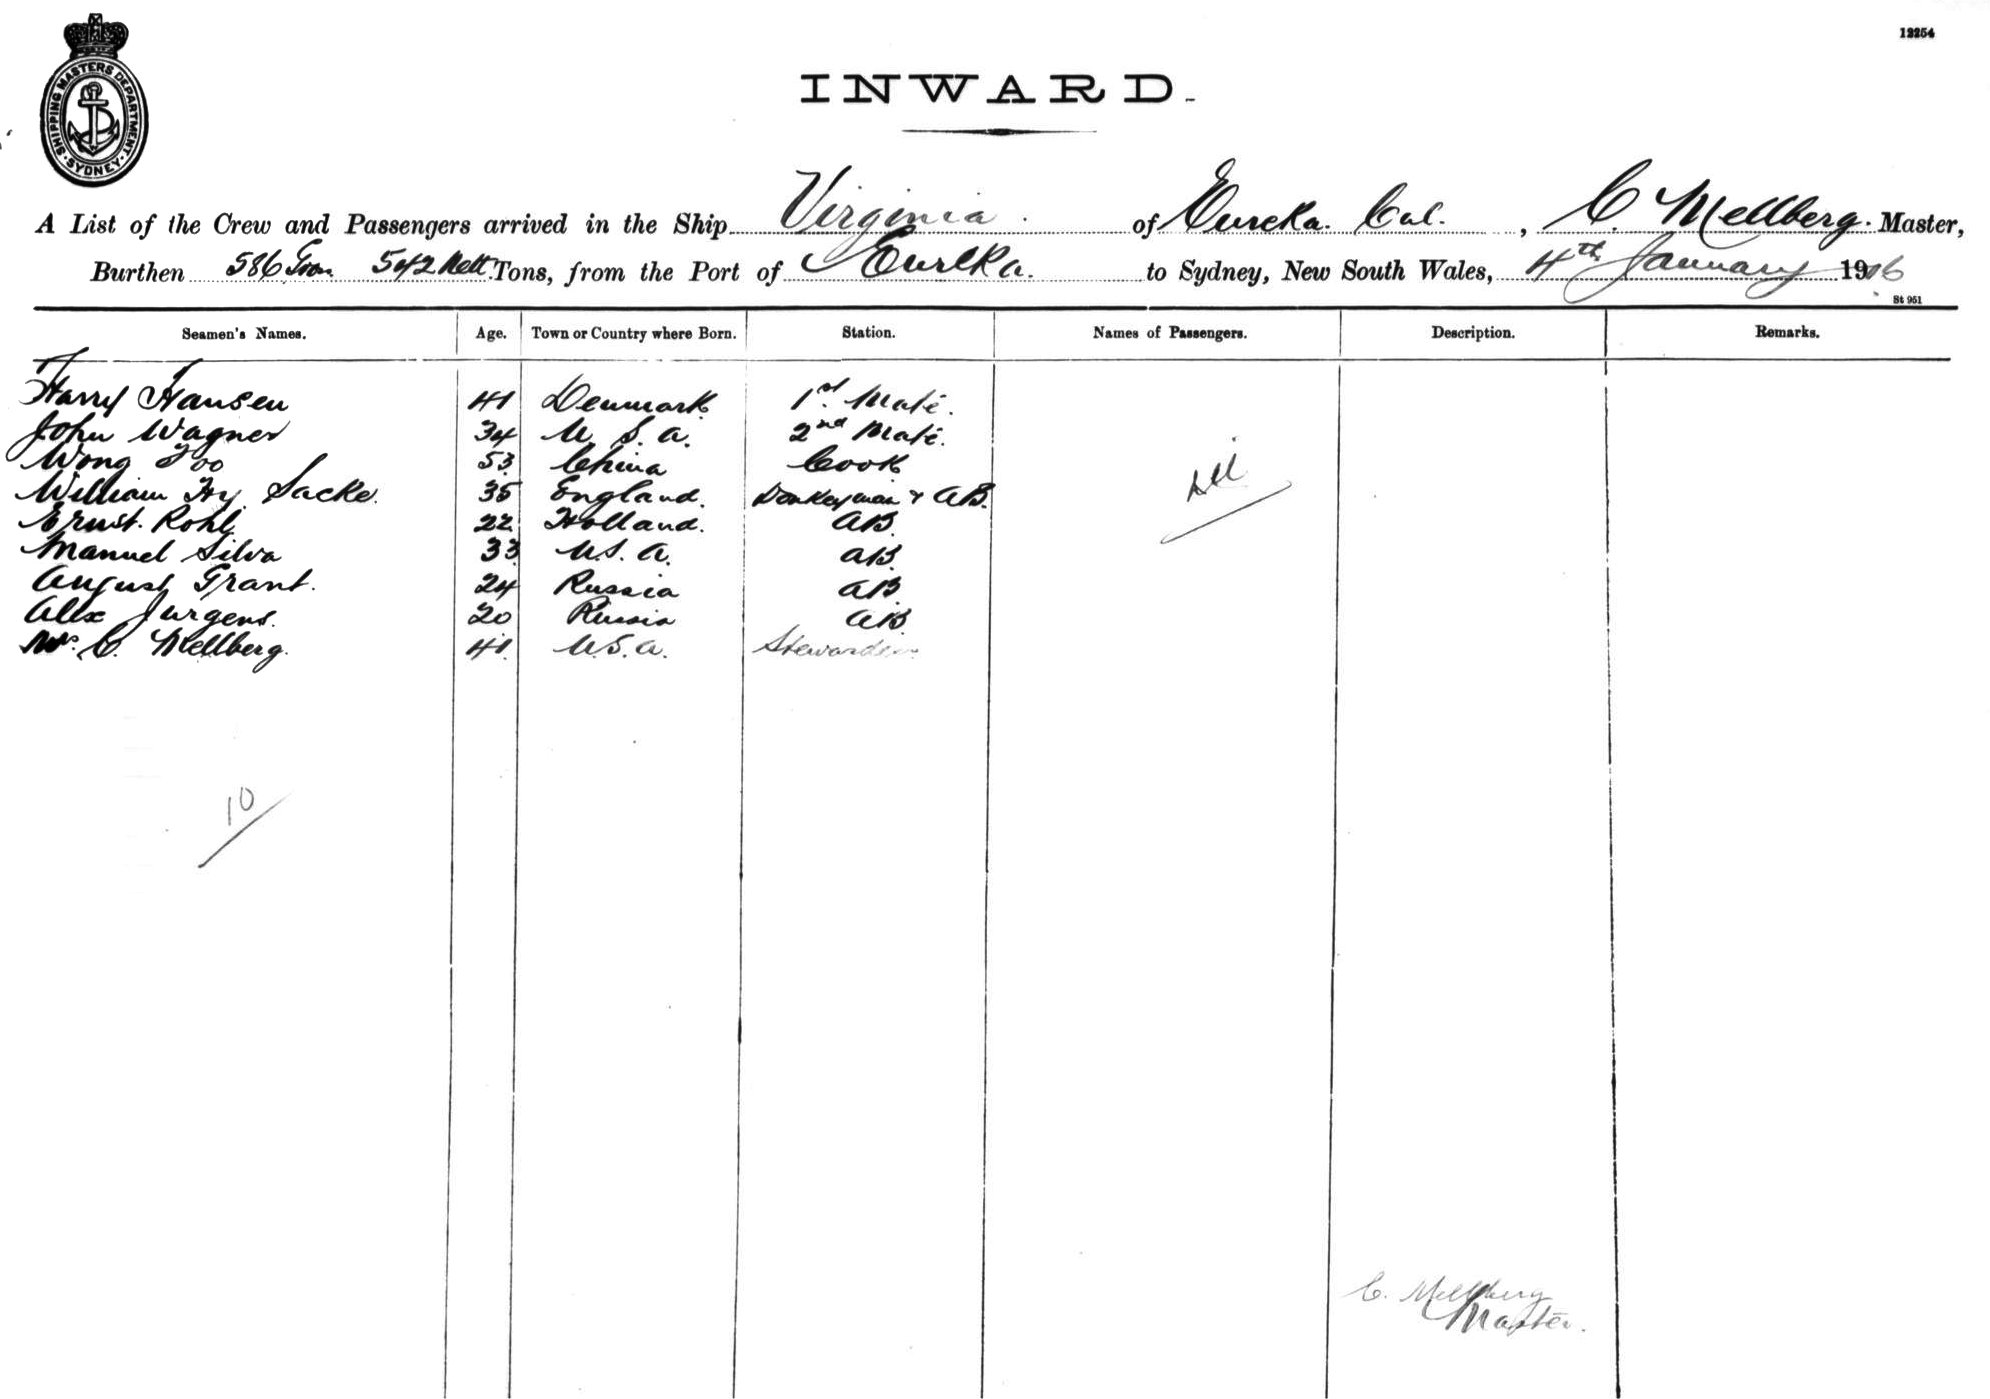 12254
SHIPPING MASTERS DEPARTMENT · SYDNEY ·
INWARD.
A List of the Crew and Passengers arrived in the Ship Virginia. of Eureka. Cal. , C. Mellberg. Master,
Burthen 586 Gross 542 Nett. Tons, from the Port of Eureka. to Sydney, New South Wales, 4th January 1916
St 951
Seamen's Names. Age. Town or Country where Born. Station. Names of Passengers. Description. Remarks.
Harry Hansen 41 Denmark 1st. Mate.
John Wagner 34 U. S. A. 2nd Mate.
Wong Foo 53. China Cook
William Hy. Sacke. 35 England. Donkeyman + AB.
Ernst. Rohl 22 Holland. AB.
Manuel Silva 33 U.S. A. AB.
August Grant. 24 Russia AB
Alex Jurgens. 20 Russia AB.
Mrs. C. Mellberg. 41. U.S.A. Stewardess.
Nil
10
C. Mellberg
Master.